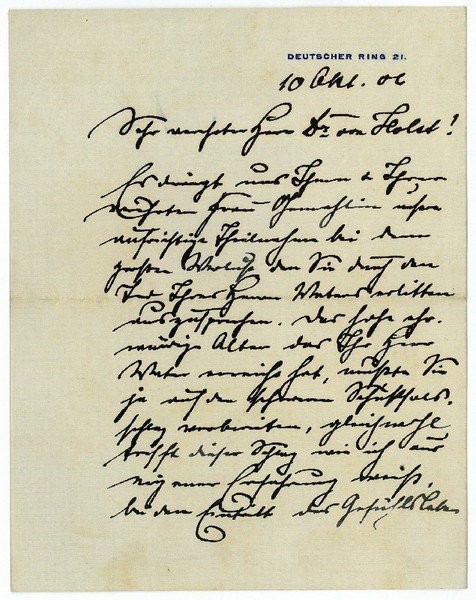 DEUTSCHER RING 21.
10 Okt. 06
Sehr verehrter Herr Dr. von Holst!
Es drängt uns Ihnen & Ihrer
verehrten Frau Gemahlin unsere
aufrichtige Theilnahme bei dem
großen Verluste den Sie durch den
Tod Ihres Herrn Vaters erlitten
auszusprechen. Das hohe ehr-
würdige Alter das Ihr Herr
Vater erreicht hat, mußte Sie
ja auf den schweren Schicksals-
schlag vorbereiten, gleichwohl
trifft dieser Schlag wie ich aus
eigener Erfahrung weiß,
bei dem des Gefühlslebens